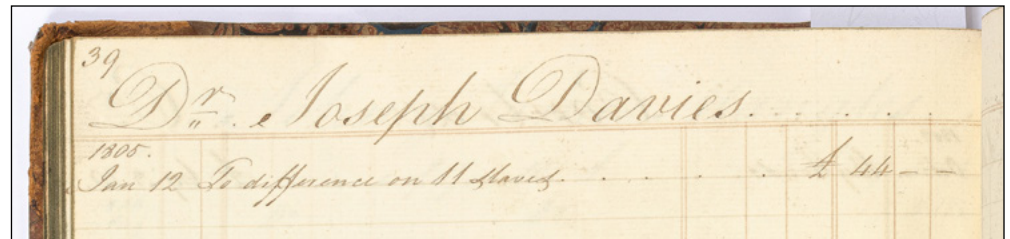 39
Dr. Joseph Davies . . . . . .
1805.
Jan 12 To difference on 11 Slaves . . . . . £ 44 – –